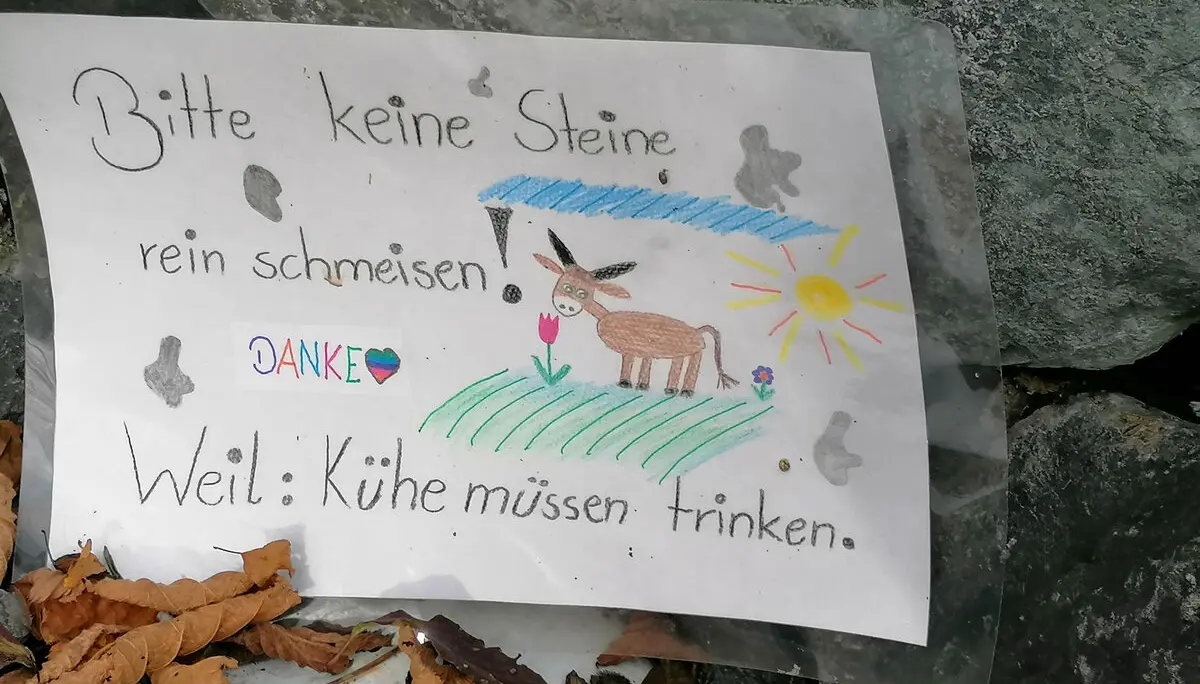 Bitte keine Steine
rein schmeisen!
DANKE
Weil: Kühe müssen trinken.